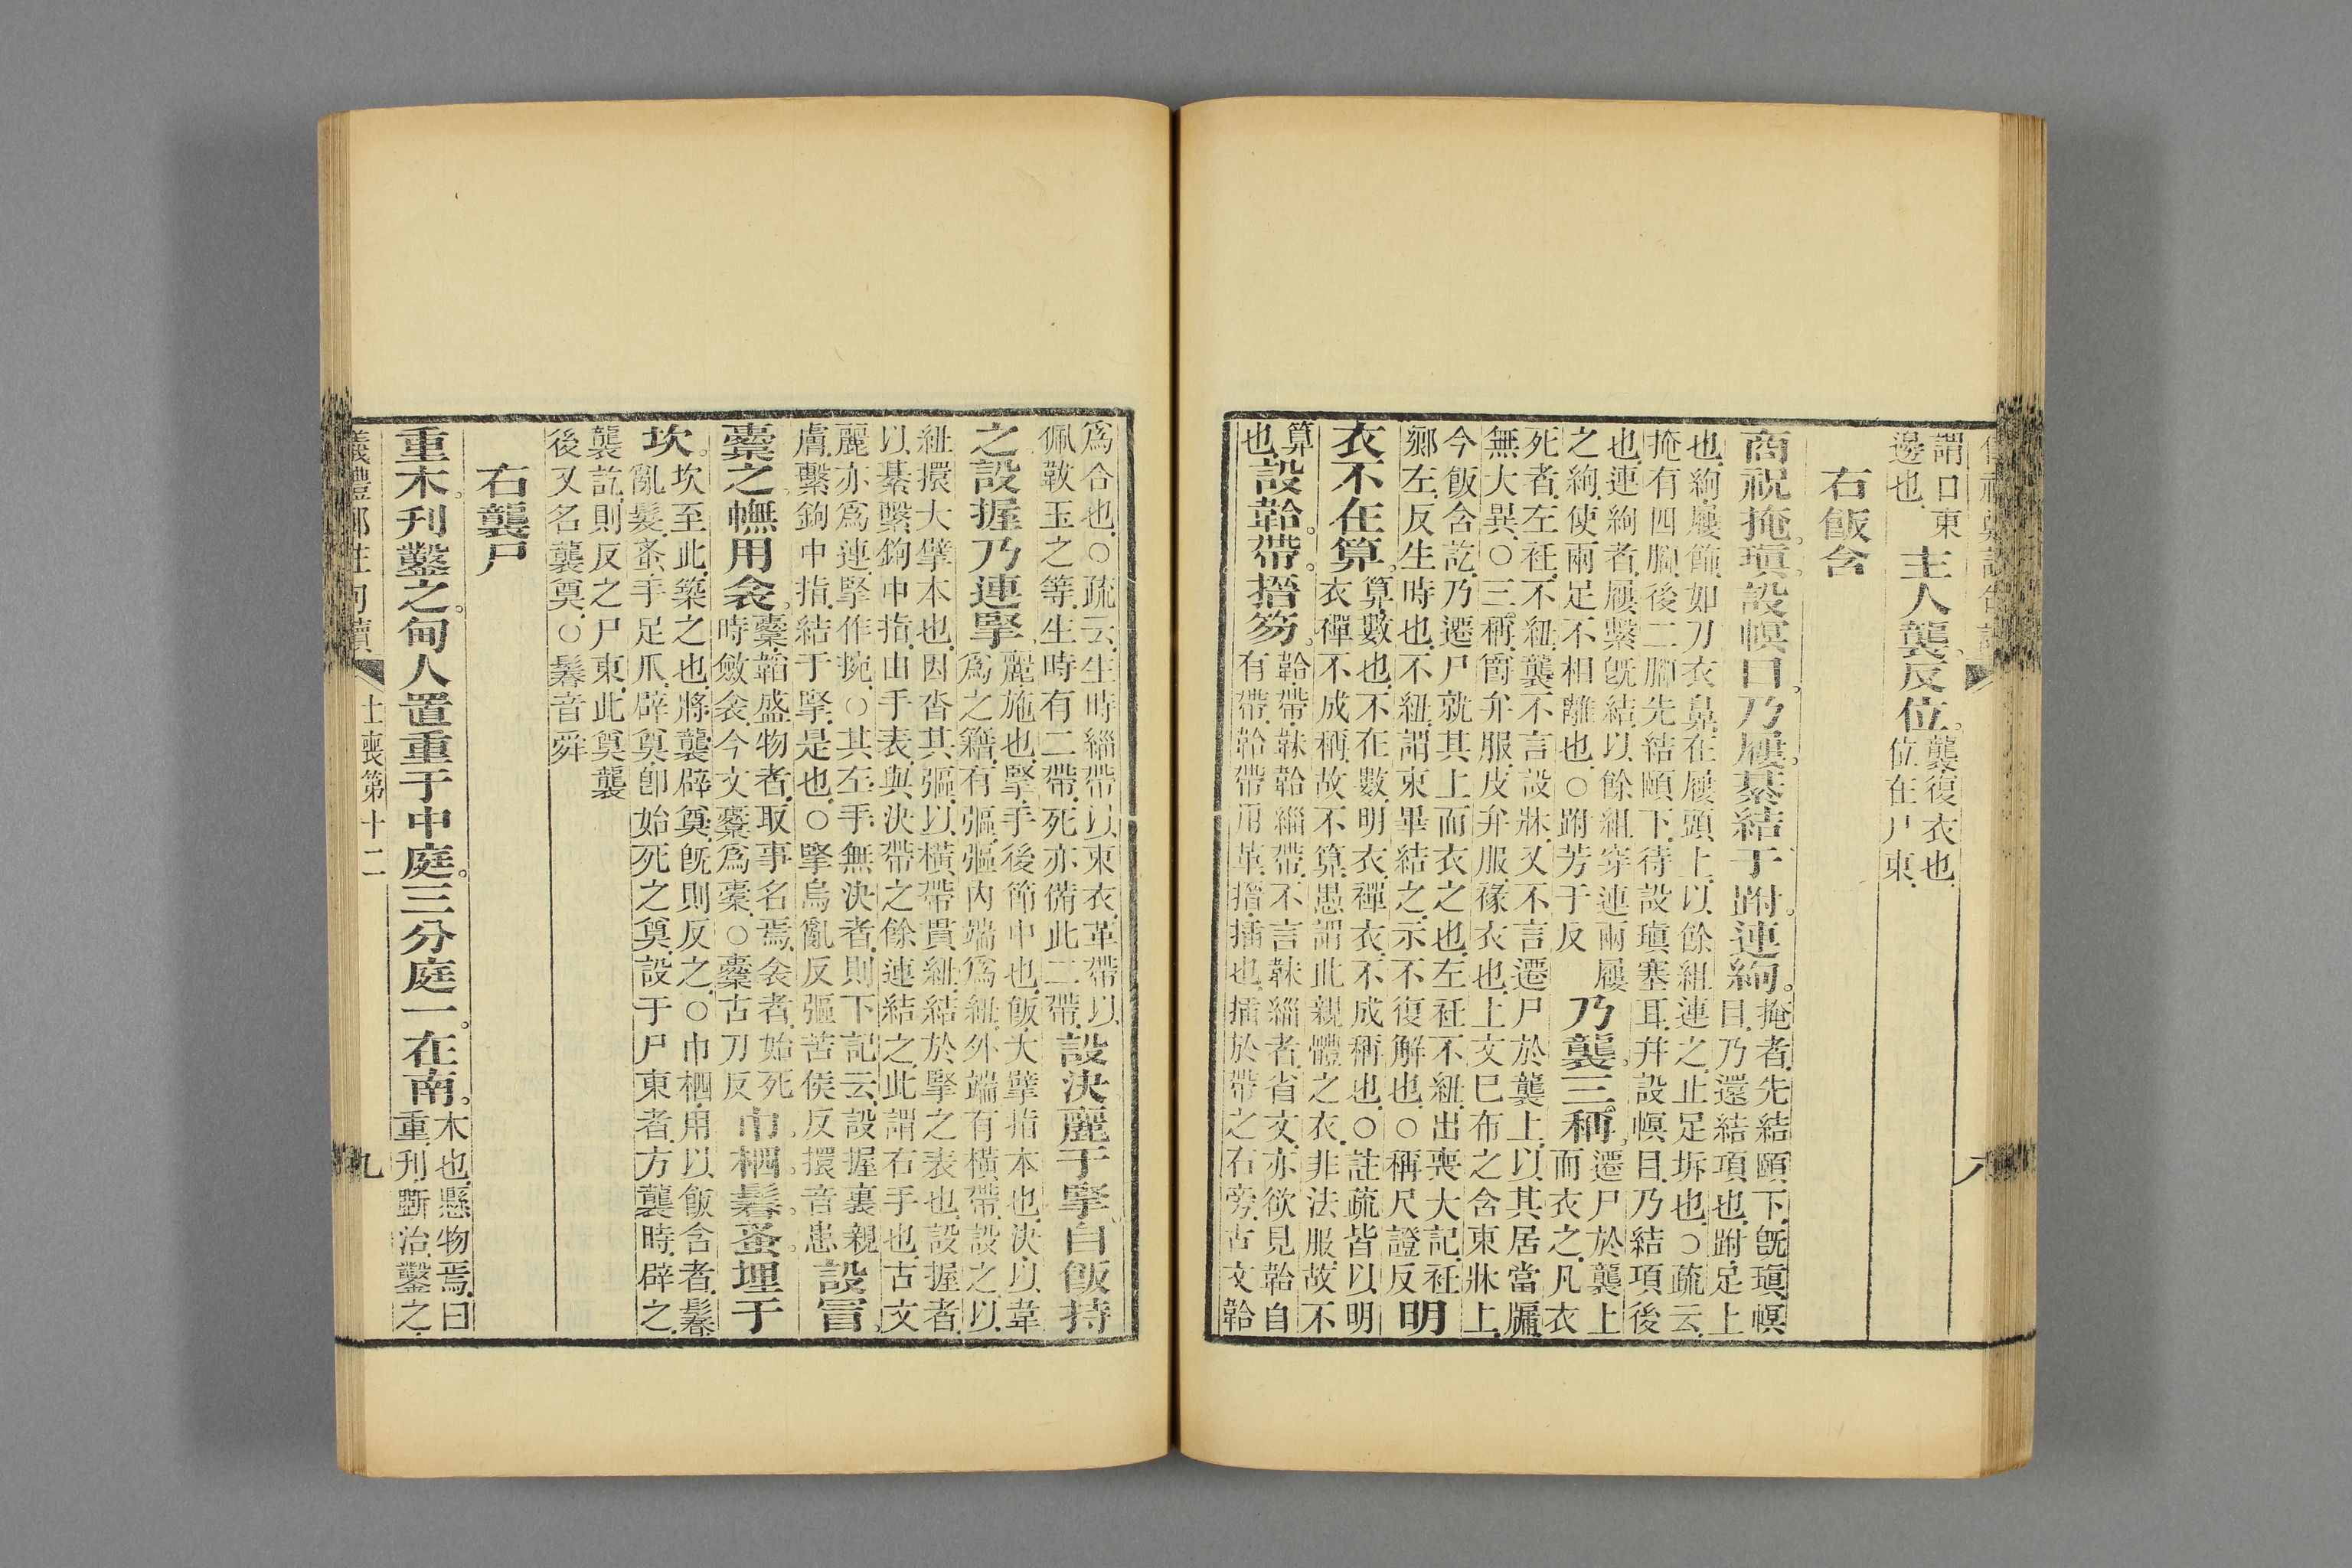 謂口東
邊也
主人襲反位。
襲復衣也
位在尸東
右飯含
商祝掩瑱設幎目乃屨綦結于跗連絇。
掩者先結頤下旣瑱幎
目乃還結項也跗足上
也絇屨飾如刀衣鼻在屨頭上以餘組連之止足坼也○疏云
掩有四腳後二腳先結頤下待設瑱塞耳幷設幎目乃結項後
也連絇者屨繫旣結以餘組穿連兩屨
之絇使兩足不相離也○跗芳于反
乃襲三稱
遷尸於襲上
而衣之凡衣
死者左衽不紐襲不言設牀又不言遷尸於襲上以其居當牖
無大異○三稱爵弁服皮弁服褖衣也上文已布之含東牀上
今飯含訖乃遷尸就其上而衣之也左衽不紐出喪大記衽
鄕左反生時也不紐謂束畢結之示不復解也○稱尺證反
明
衣不在算
算數也不在數明衣襌衣不成稱也○註疏皆以明
衣襌不成稱故不算愚謂此親體之衣非法服故不
算
也
設韐帶搢笏
韐帶韎韐緇帶不言韎緇者省文亦欲見韐自
有帶韐帶用革搢插也插於帶之右旁古文韐
八
爲合也○疏云生時緇帶以束衣革帶以
佩韍玉之等生時有二帶死亦備此二帶
設決麗于掔自飯持
之設握乃連掔
麗施也掔手後節中也飯大擘指本也決以韋
爲之籍有彄彄內端爲紐外端有橫帶設之以
紐擐大擘本也因沓其彄以橫帶貫紐結於掔之表也設握者
以綦繫鉤中指由手表與決帶之餘連結之此謂右手也古文
麗亦爲連掔作捥○其左手無決者則下記云設握裏親
膚繫鉤中指結于掔是也○掔烏亂反彄苦侯反擐音患
設冒
櫜之幠用衾
櫜韜盛物者取事名焉衾者始死
時斂衾今文櫜爲橐○櫜古刀反
巾柶鬊蚤埋于
坎
坎至此築之也將襲辟奠旣則反之○巾柶用以飯含者鬊
亂髮蚤手足爪辟奠卽始死之奠設于尸東者方襲時辟之
襲訖則反之尸東此奠襲
後又名襲奠○鬊音舜
右襲尸
重木刊鑿之甸人置重于中庭三分庭一在南
木也懸物焉曰
重刊斲治鑿之
儀禮鄭註句讀 士喪第十二 九